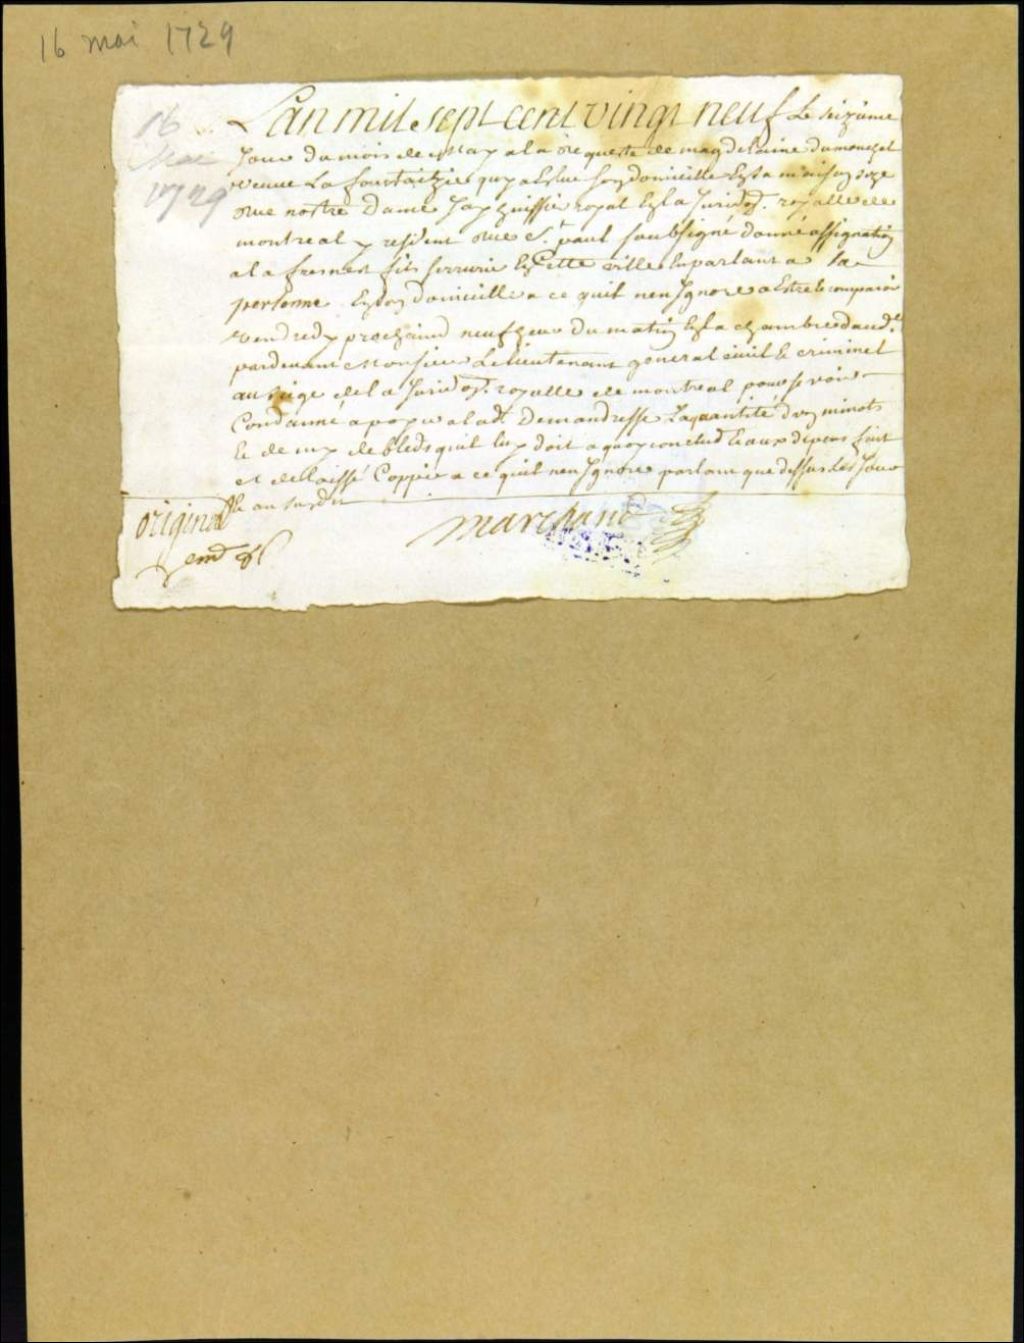 16 mai 1729
16
Mai
1729
L'an mil sept cent vingt neuf Le Seizieme
Jour du mois de May a la Requeste de magdelaine dumouchel
veuve La fontaine quy a Eslue son domicille En sa maison size
Rue nostre Dame Jay huissier royal En la Juridon. royalle de
montreal y resident Rue St. paul soubsigné donné assignation
a la fresnes fils serrurier En Cette ville En parlant a sa
personne En son domicille a ce quil nen Ignore a Estre Et comparoir
vendredy prochain neuf heure du matin En la chambre daude.
pardevant Monsieur Le lieutenant general Civil Et criminel
au siege de la Juridon. royalle de montreal pour se voir
Condamné a payer a ladt. Demandresse La quantité de minots
Et demy de bled quil luy doit a quoy conclud Et aux depens fait
et dellaissé Coppie a ce quil nen Ignore parlant que dessus les Jour
Et an susdit
original
marchand